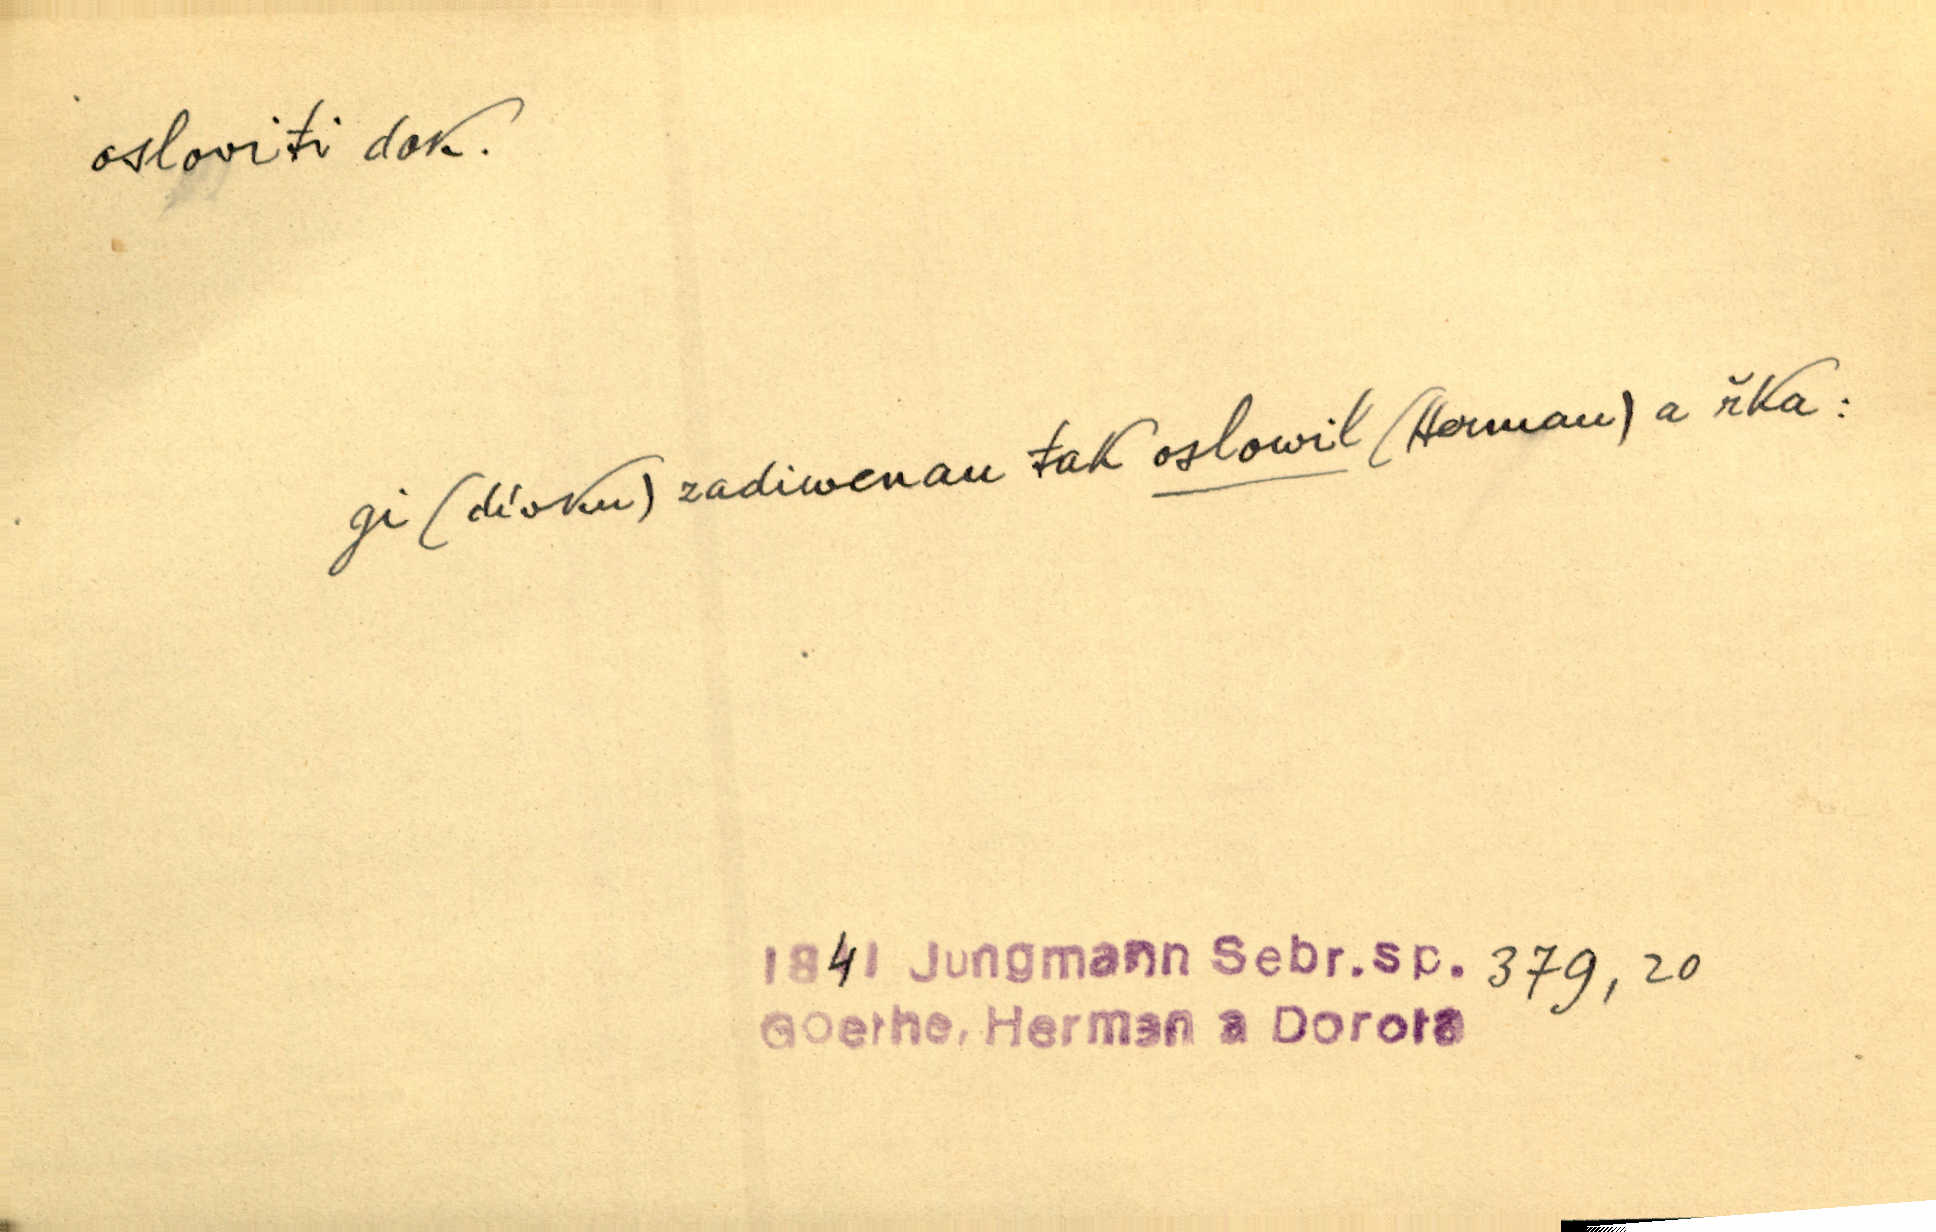 osloviti dok.
gi (dívku) zadiwenau tak oslowil (Herman) a řka:
1841 Jungmann Sebr.sp. 379, 20
Goethe, Herman a Dorota